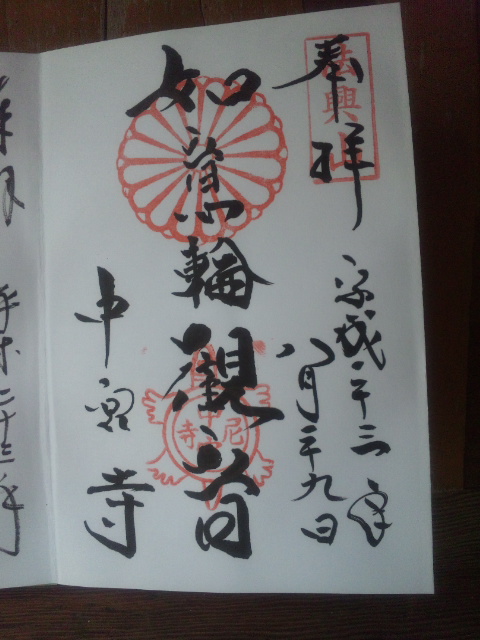 奉拝
法興山
平成二十三年
八月二十九日
如意輪観音
中宮寺
中宮尼寺
年二十三年